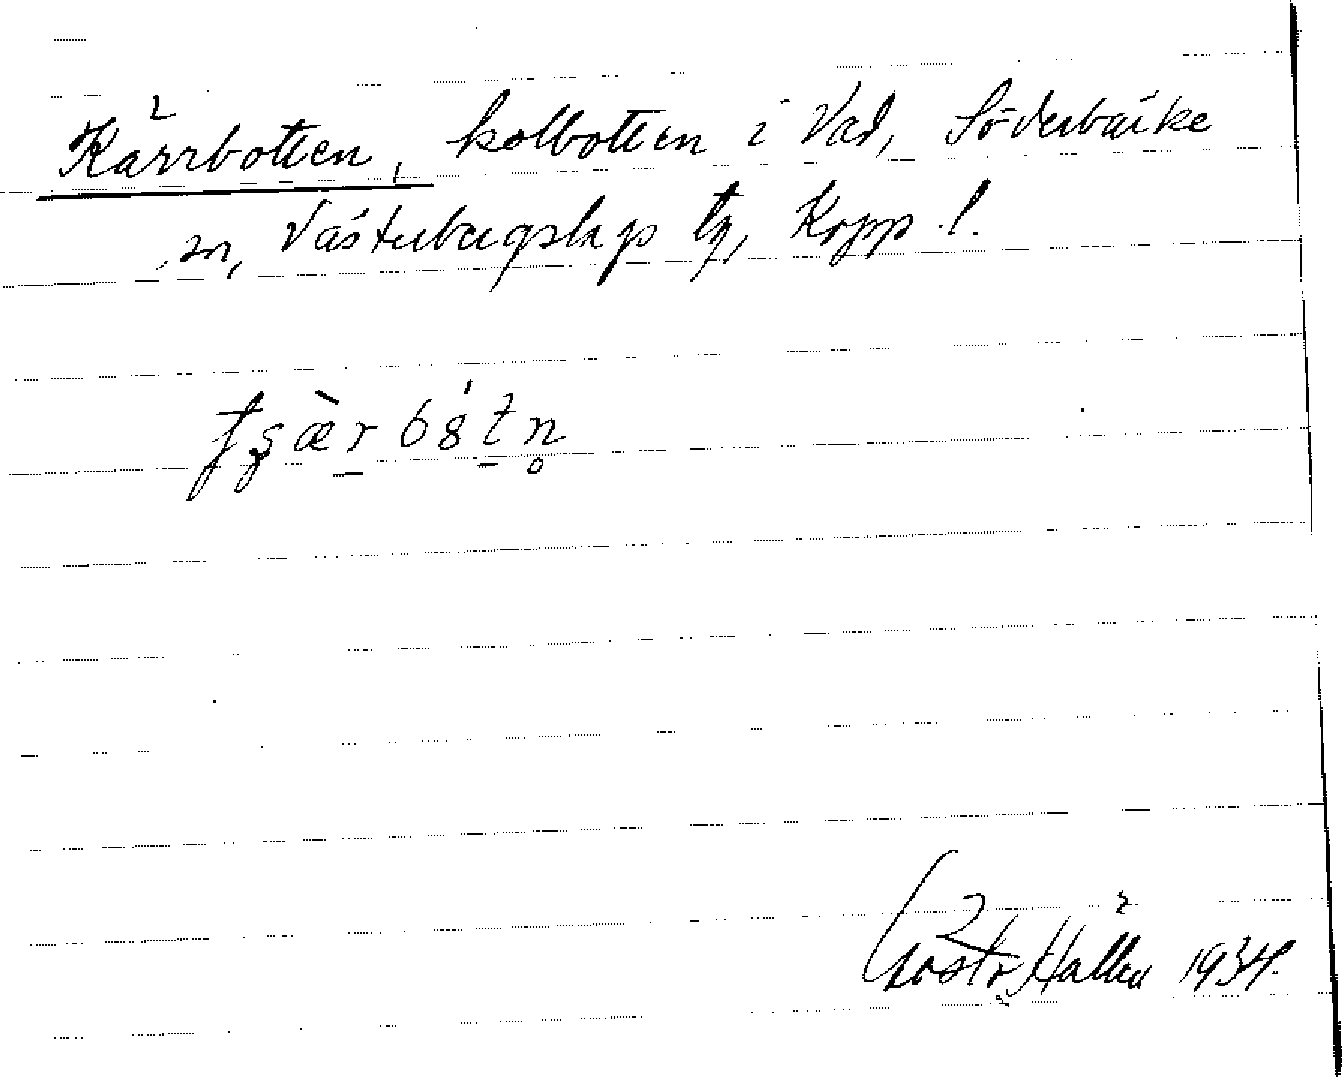 Kärrbotten, kolbotten i Vad, Söderbärke
sn, Västerbergslags tg, Kopp. l.
Gösta Hallén 1934.